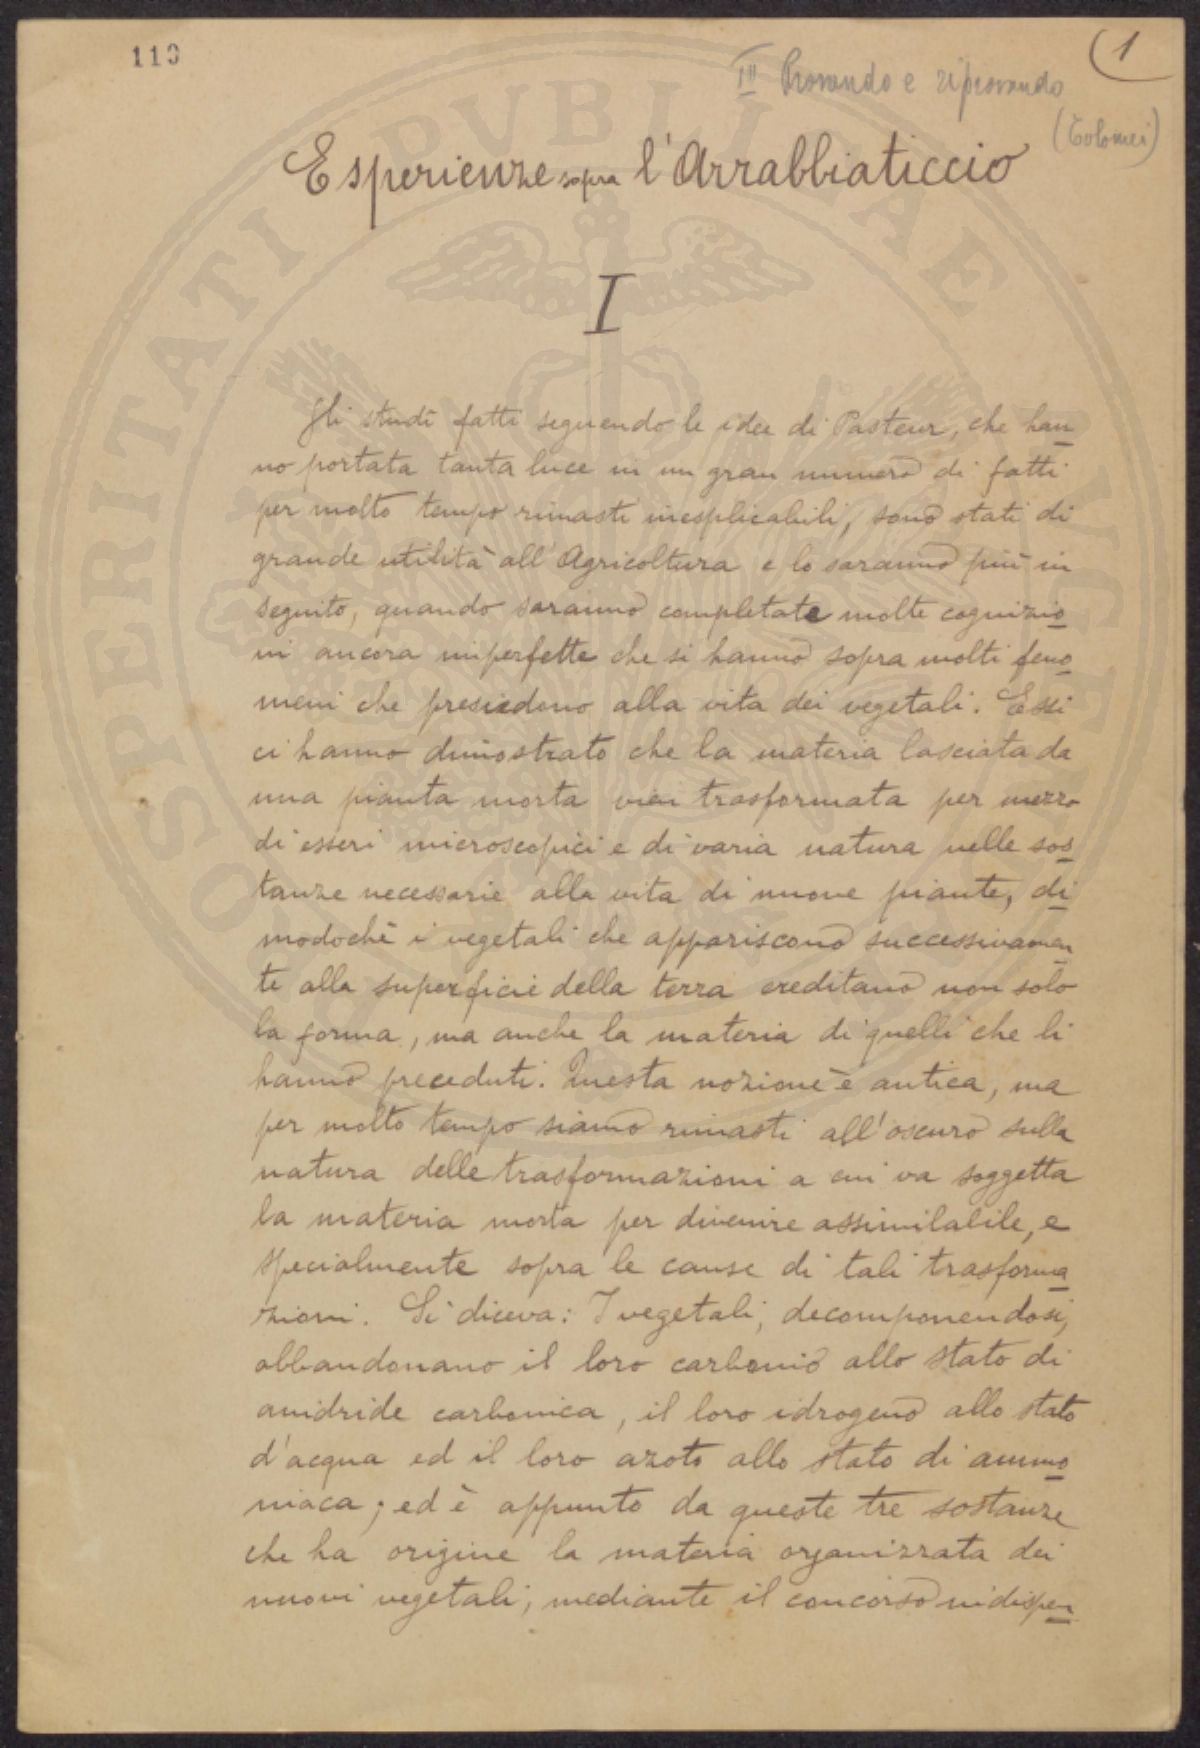 110
1
III Provando e riprovando
(Tolomei)
Esperienze sopra l'Arrabbiaticcio
I
Gli studi fatti seguendo le idee di Pasteur, che han
no portata tanta luce in un gran numero di fatti
per molto tempo rimasti inesplicabili, sono stati di
grande utilità all'Agricoltura e lo saranno più in
seguito, quando saranno completate molte cognizio
ni ancora imperfette che si hanno sopra molti feno
meni che presiedono alla vita dei vegetali. Essi
ci hanno dimostrato che la materia lasciata da
una pianta morta vien trasformata per mezzo
di esseri microscopici e di varia natura nelle sos
tanze necessarie alla vita di nuove piante, di
modochè i vegetali che appariscono successivamen
te alla superficie della terra ereditano non solo
la forma, ma anche la materia di quelli che li
hanno preceduti. Questa nozione è antica, ma
per molto tempo siamo rimasti all'oscuro sulla
natura delle trasformazioni a cui va soggetta
la materia morta per divenire assimilabile, e
specialmente sopra le cause di tali trasforma
zioni. Si diceva: I vegetali, decomponendosi,
abbandonano il loro carbonio allo stato di
anidride carbonica, il loro idrogeno allo stato
d'acqua ed il loro azoto allo stato di ammo
niaca; ed è appunto da queste tre sostanze
che ha origine la materia organizzata dei
nuovi vegetali, mediante il concorso indispen
PROSPERITATI PVBLICAE AVGENDAE